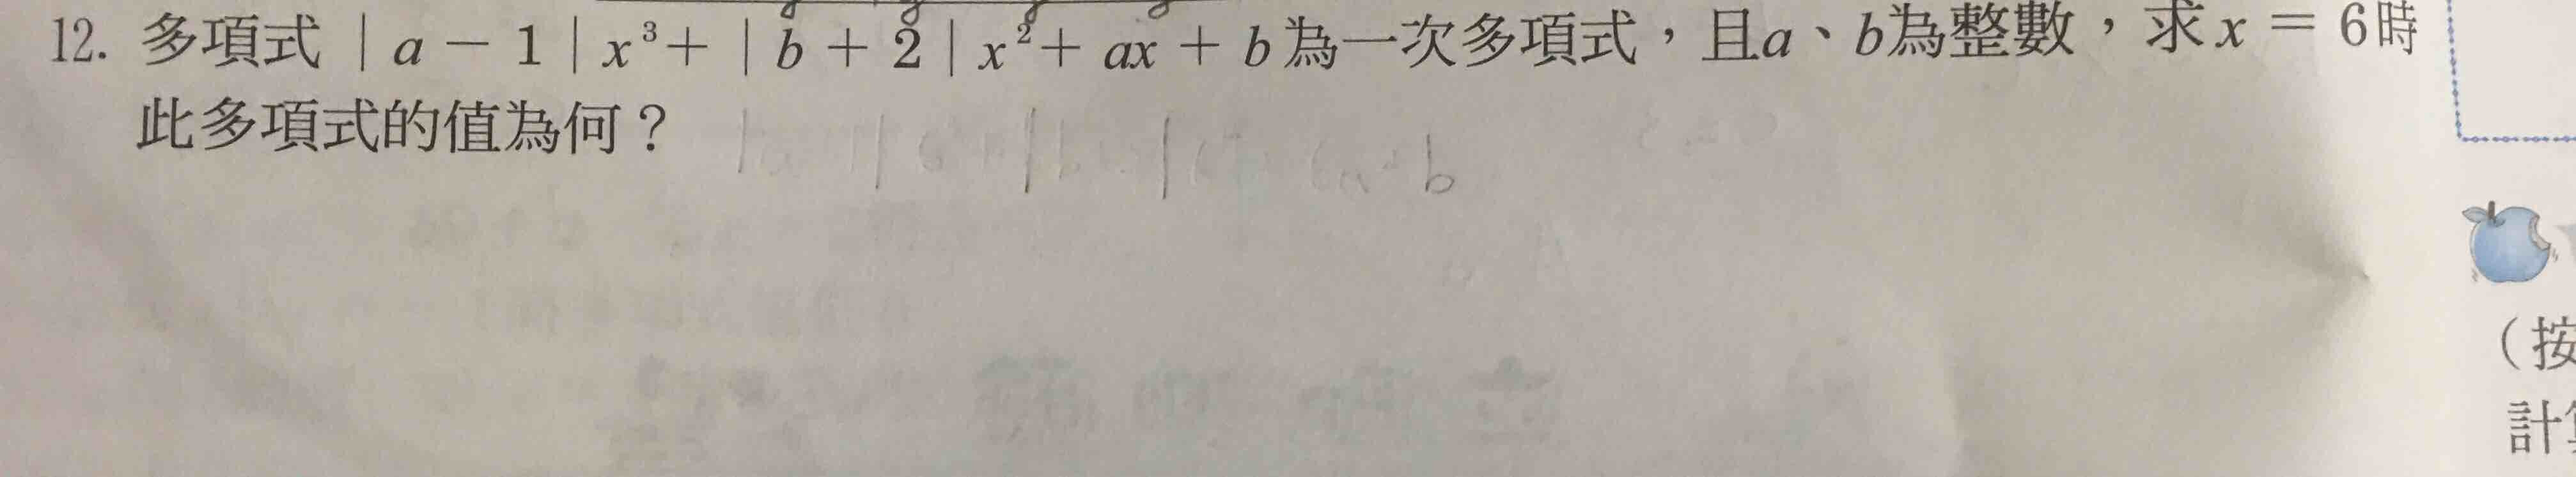 12. 多項式｜a－1｜x³＋｜b＋2｜x²＋ax＋b為一次多項式，且a、b為整數，求x＝6時
此多項式的值為何？
b
（按
計